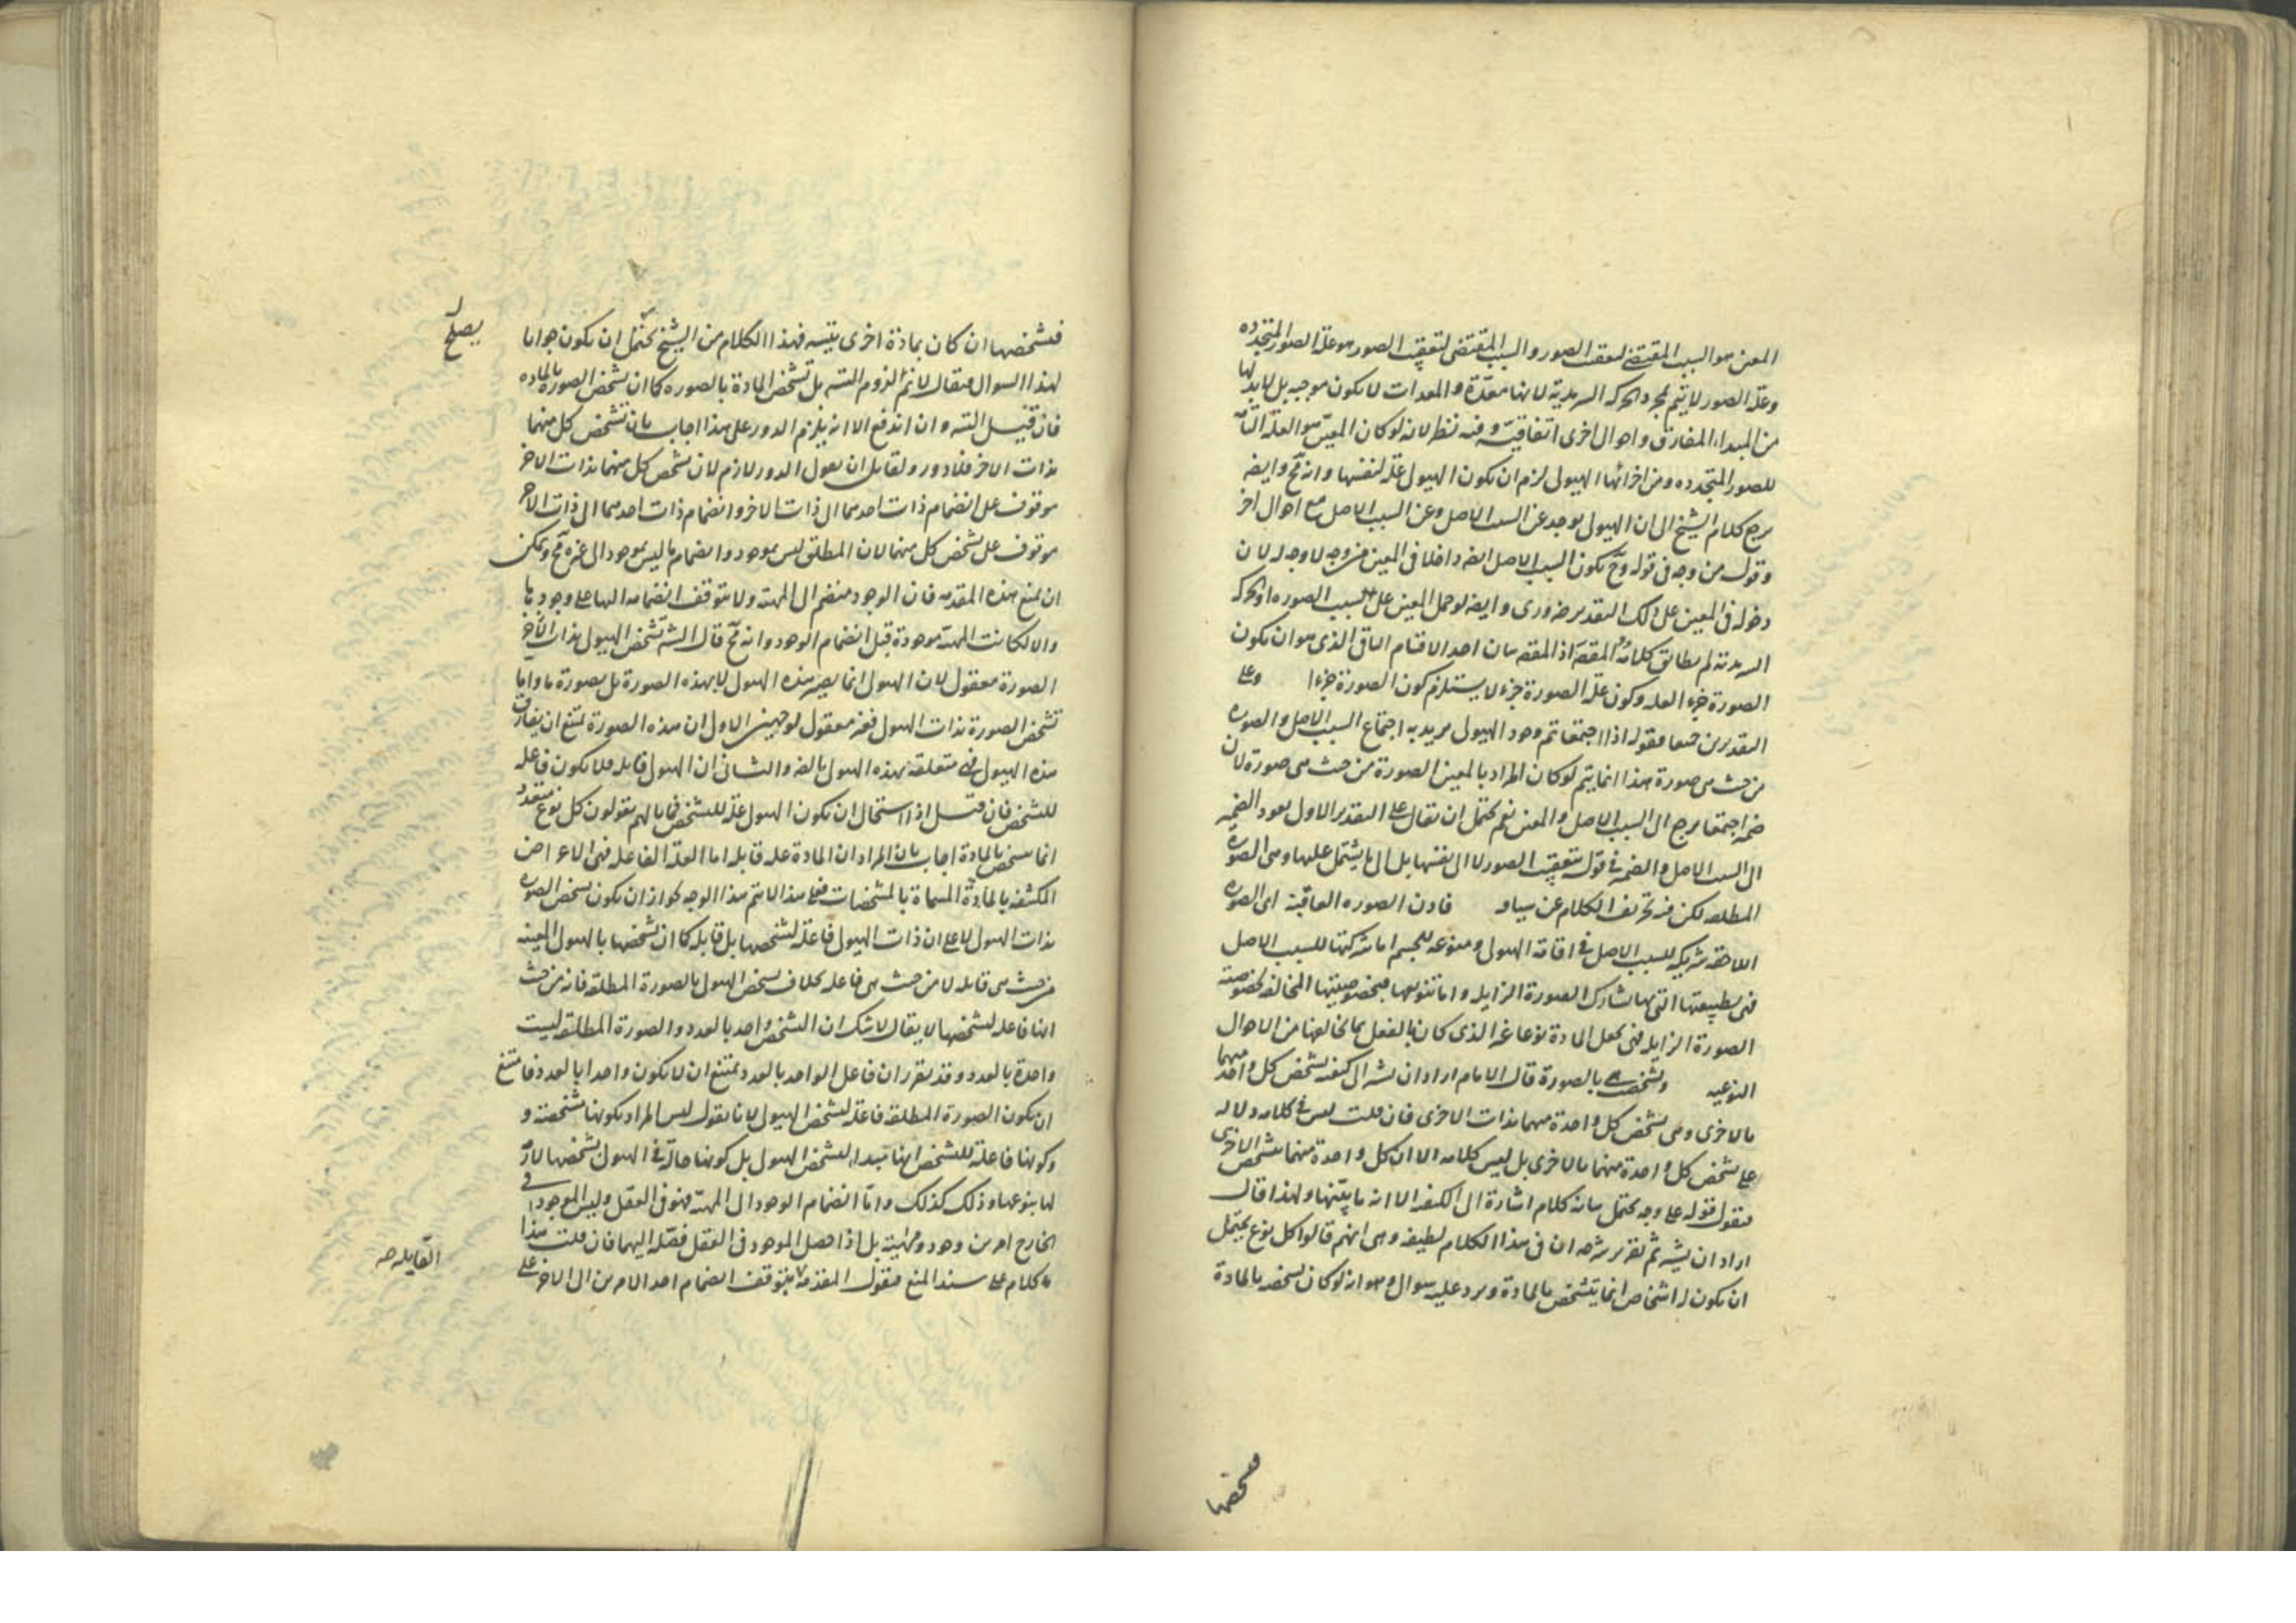 المعين هو السبب المقتضى لتعقب الصور والسبب المقتضى لتعقيب الصور هو علة الصور المتجدده
وعلة الصور لا يتم بمجرد الحركه السرمدية لانها معدّة والمعدات لا يكون موجبه بل لا بد لها
من المبداء المفارق واحوال اخرى اتفاقيّة وفيه نظر لانه لو كان المعين هو العلة التامّة
للصور المتجدده ومن اجزائها الهيولى لزم ان يكون الهيولى علة لنفسها وانه مح وايضه
يرجع كلام الشيخ الى ان الهيولى يوجد عن السبب الاصل وعن السبب الاصل مع احوال اخر
وقوله من وجه فى قوله وح يكون السبب الاصل ايضه داخلا فى المعين من وجه لا وجه له لان
دخوله فى المعين على ذلك التقدير ضرورى وايضه لو حمل المعين على سبب الصوره او الحركه
السرمدية لم يطابق كلامه المقصد اذ المقصد بيان احد الاقسام الباقى الذى هو ان يكون
الصورة جزء العله وكون علة الصورة جزء لا يستلزم كون الصورة جزءا وعلى
التقديرين جميعا فقوله اذا اجتمعا تم وجود الهيولى يريد به اجتماع السبب الاصل والصوره
من حيث هى صورة هذا انما يتم لو كان المراد بالمعين الصورة من حيث هى صورة لان
ضمير اجتمعا يرجع الى السبب الاصل والمعين نعم يحتمل ان يقال على التقدير الاول يعود الضمير
الى السبب الاصل والضمير فى قوله بتعقيب الصور لا الى نفسها بل الى ما يشتمل عليها وهى الصوره
المطلقه لكن فيه تحريف الكلام عن سياقه فاذن الصوره العاقبة اى الصوره
اللاحقه شريكه للسبب الاصل فى اقامة الهيولى ومنوعه للجسم اما شركتها للسبب الاصل
فهى بطبيعتها التى بها تشارك الصورة الزايله واما تنويعها فبخصوصيتها المخالفه لخصوصية
الصورة الزايله فهى تجعل المادة نوعا غير الذى كان بالفعل بما يخالفها من الاحوال
النوعيه وتشخصت هى بالصورة قال الامام اراد ان يشير الى كيفيه تشخص كل واحد منهما
بالاخرى وهى تشخص كل واحدة منهما بذات الاخرى فان قلت ليس فى كلامه دلاله
على تشخص كل واحدة منهما بالاخرى بل ليس كلامه الا ان كل واحدة منهما تشخص الاخرى
فنقول قوله على وجه يحتمل بيانه كلام اشارة الى الكيفيه الا انه ما بيّنها ولهذا قال
اراد ان يشير ثم تقرير شرحه ان فى هذا الكلام لطيفه وهى انهم قالوا كل نوع يحتمل
ان يكون له اشخاص انما يتشخص بالمادة ويرد عليه سوال وهو انه لو كان تشخصه بالمادة
فتشخصها
فتشخصها ان كان بمادة اخرى يتسه فهذا الكلام من الشيخ يحتمل ان يكون جوابا
يصلح
لهذا السوال فيقال لا نم لزوم التسه بل تشخص المادة بالصوره كما ان تشخص الصوره بالماده
فان قيل التسه وان اندفع الا انه يلزم الدور على هذا اجاب بان تشخص كل منهما
بذات الاخر فلا دور ولقايل ان يقول الدور لازم لان تشخص كل منهما بذات الاخر
موقوف على انضمام ذات احدهما الى ذات الاخر وانضمام ذات احدهما الى ذات الاخر
موقوف على تشخص كل منهما لان المطلق ليس بموجود وانضمام ما ليس بموجود الى غيره مح ويمكن
ان يمنع هذه المقدمه فان الوجود منضم الى المهية ولا يتوقف انضمامه اليها على وجودها
والا لكانت المهية موجودة قبل انضمام الوجود وانه مح قال الشه تشخص الهيولى بذات الاخر
الصورة معقول لان الهيولى انما يصير هذه الهيولى لا بهذه الصورة بل بصورة ما واما
تشخص الصورة بذات الهيولى فغير معقول لوجهين الاول ان هذه الصورة تمتنع ان يفارق
هذه الهيولى فهى متعلقة بهذه الهيولى بالضه والثانى ان الهيولى قابله فلا يكون فاعله
للتشخص فان قيل اذا استحال ان يكون الهيولى علة للتشخص فما بالهم يقولون كل نوع متعدد
انما يتشخص بالمادة اجاب بان المراد ان المادة علة قابله اما العلة الفاعله فهى الاعراض
المكتنفه بالمادة المسماة بالمشخصات فعلى هذا لا يتم هذا الوجه لجواز ان يكون تشخص الصوره
بذات الهيولى لا على ان ذات الهيولى فاعلة لتشخصها بل قابله كما ان تشخصها بالهيولى المعينه
من حيث هى قابله لا من حيث هى فاعله بخلاف تشخص الهيولى بالصورة المطلقة فانه من حيث
انها فاعله لتشخصها لا يقال لا شك ان التشخص واحد بالعدد والصورة المطلقة ليست
واحدة بالعدد وقد تقرر ان فاعل الواحد بالعدد يمتنع ان لا يكون واحدا بالعدد فامتنع
ان يكون الصورة المطلقه فاعلة لتشخص الهيولى لانا نقول ليس المراد بكونها مشخصة و
وكونها فاعلة للتشخص انها مبداء لتشخص الهيولى بل كونها حالّة فى الهيولى تشخصها لازم
لها بنوعها وذلك كذلك واما انضمام الوجود الى المهية فهو فى العقل وليس الموجود فى
الخارج امرين وجود ومهية بل اذا حصل الموجود فى العقل فصّله اليهما فان قلت هذا
كلام على سند المنع فنقول المقدمه بتوقف انضمام احد الامرين الى الاخر على
القايله صه